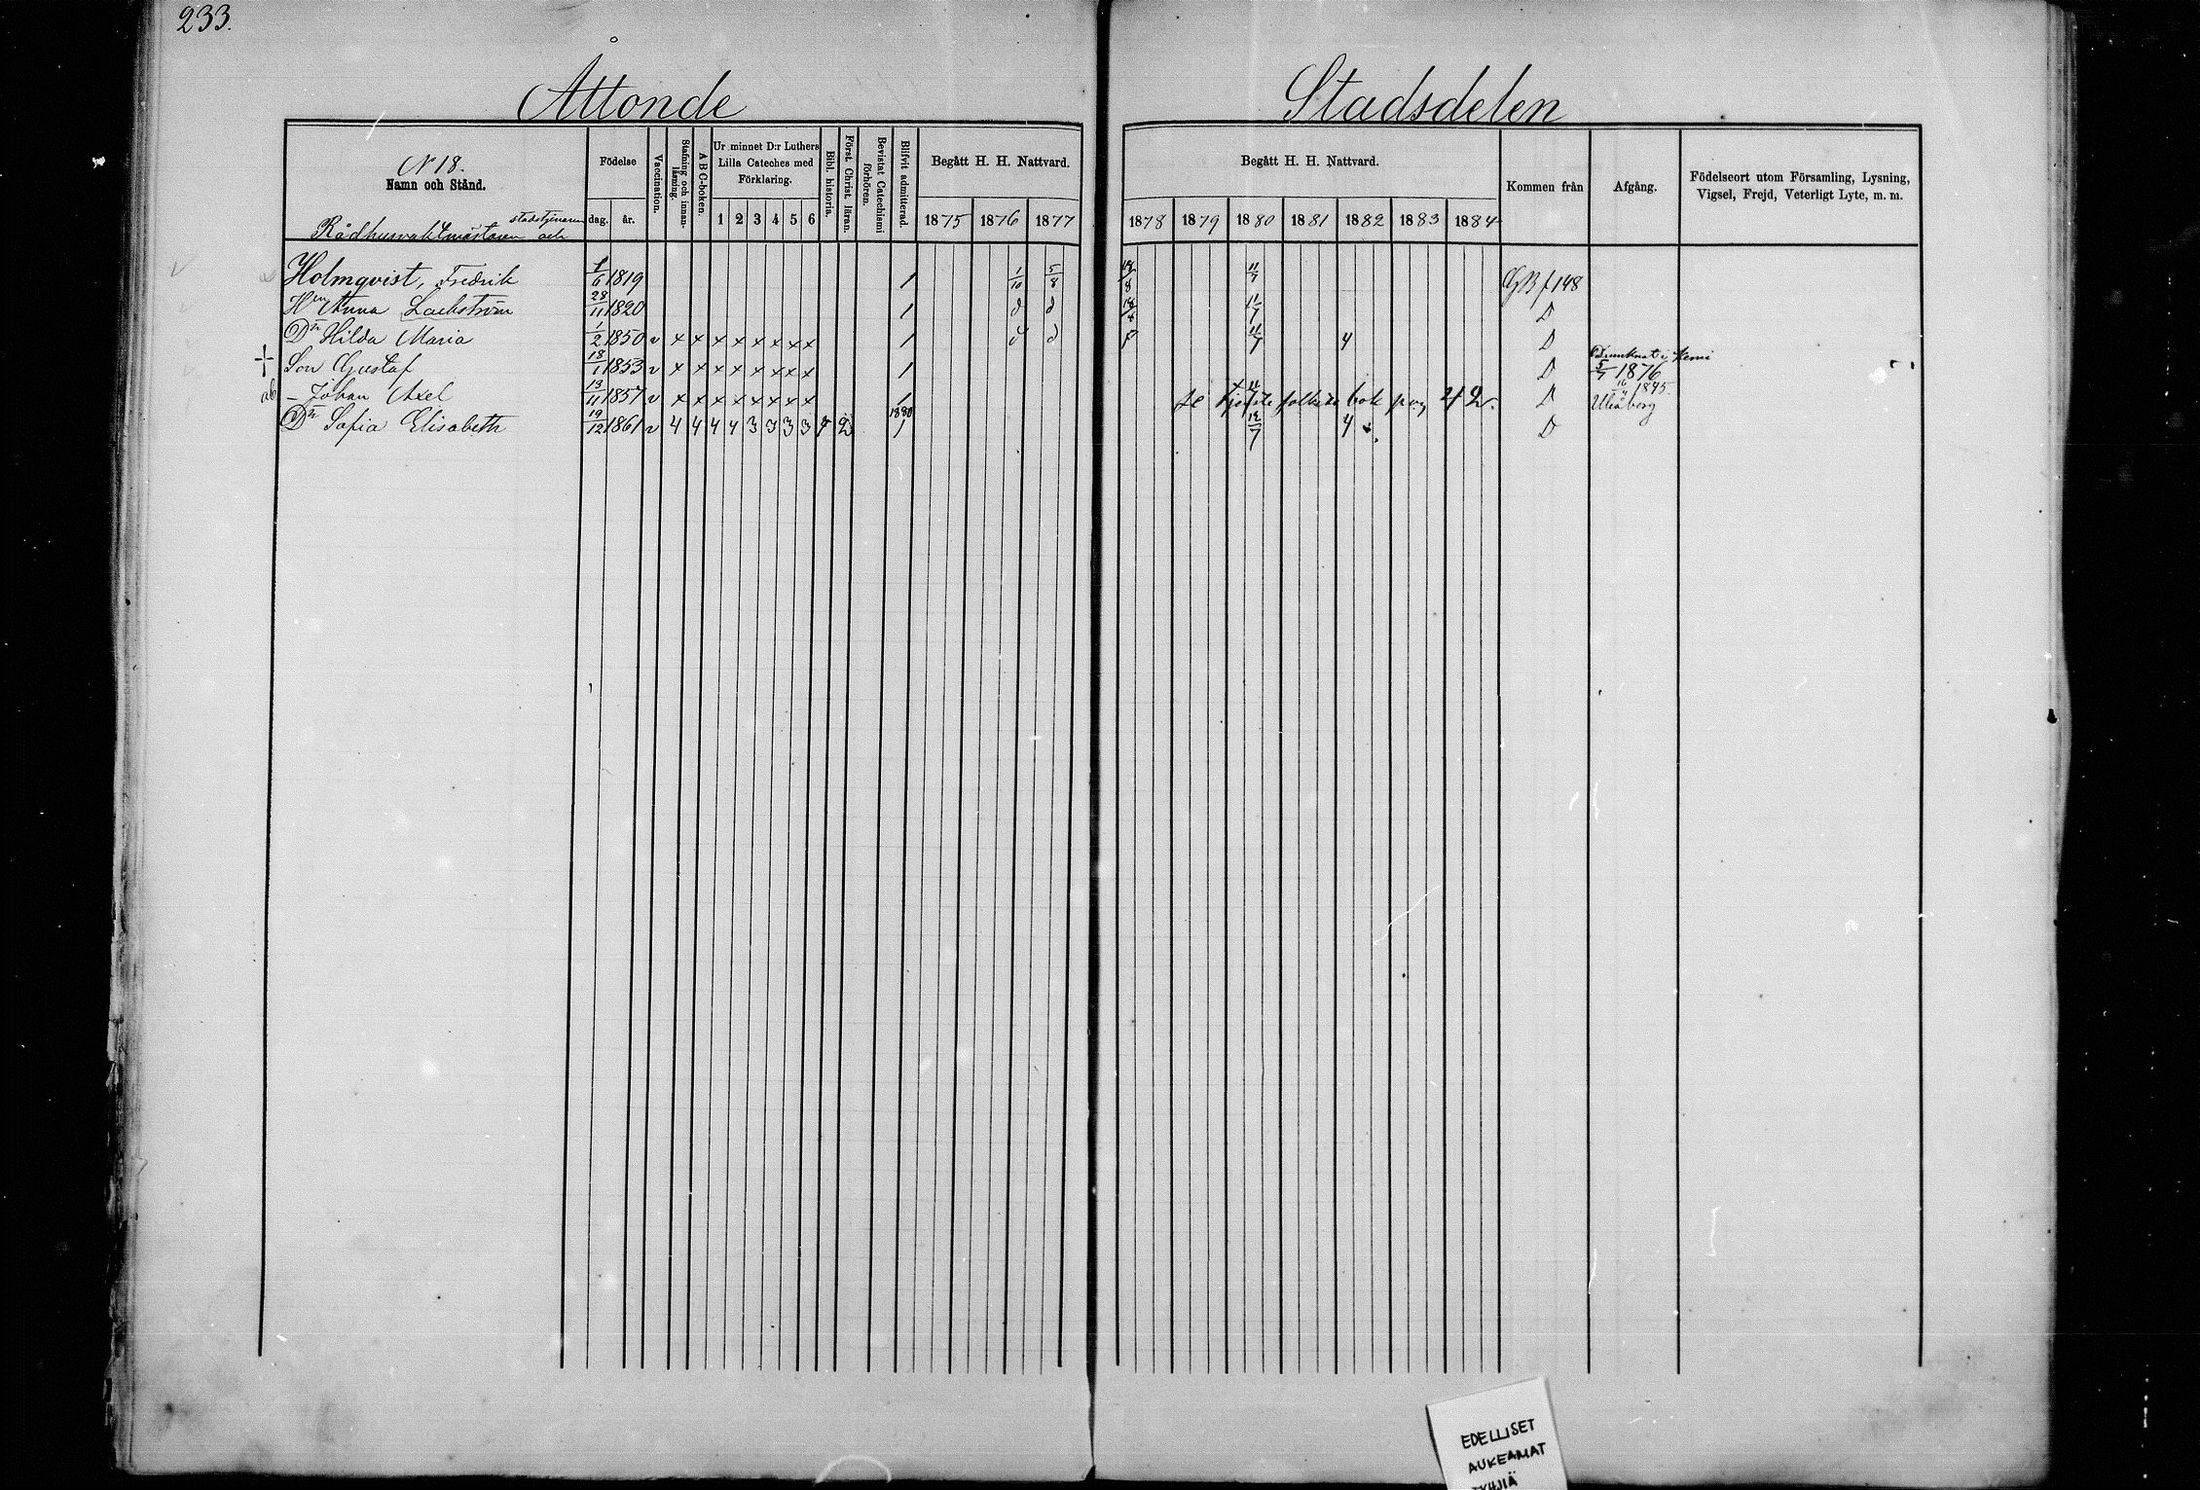 233.
Åttonde Stadsdelen
N 18.
Namn och Stånd.
Födelse
dag. år.
Vaccination.
Stafning och innanläsning.
A B C-boken.
Ur minnet D:r Luthers Lilla Cateches med Förklaring.
1 2 3 4 5 6
Bibl. historia.
Först. Christ. läran.
Bevistat Catechismi förhören.
Blifvit admitterad.
Begått H. H. Nattvard.
1875 1876 1877
Begått H. H. Nattvard.
1878 1879 1880 1881 1882 1883 1884
Kommen från
Afgång.
Födelseort utom Församling, Lysning, Vigsel, Frejd, Veterligt Lyte, m. m.
stadstjenaren
Rådhusvaktmästaren och
Holmqvist, Fredrik 1/6 1819 1 1/10 5/8 18/8 11/7 GB f 148
Hru Anna Lackström 28/11 1820 1 d d 18/8 11/7 D
Dr Hilda Maria 1/2 1850 v x x x x x x x x 1 d d 11/7 4 D
+ Son Gustaf 18/1 1853 v x x x x x x x x 1 D Drunknat i Kemi 5/7 1876
ab – Johan Axel 13/11 1857 v x x x x x x x x 1 se tjenste folkets bok pag 42. D Uleåborg 16/4 1895.
Dr Sofia Elisabeth 19/12 1861 v 4 4 4 4 3 3 3 3 1880 1 12/7 4 D
EDELLISET
AUKEAMAT
TYHJIÄ